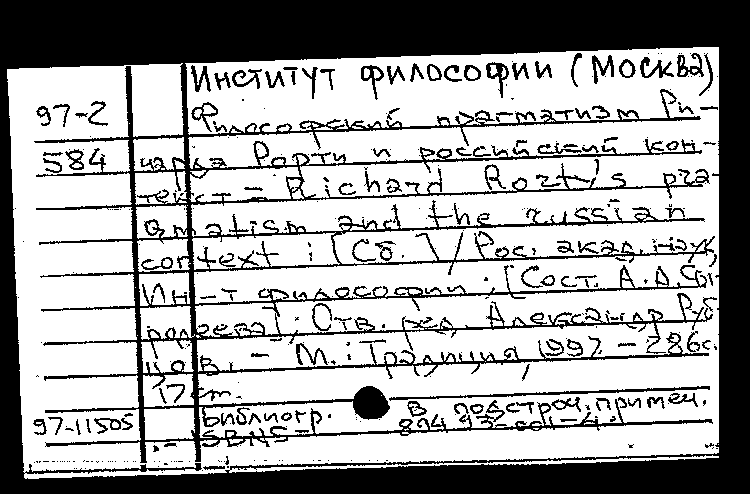 Институт философии (Москва)
97-2 Философский прагматизм Ри-
584 чарда Рорти и российский кон-
текст = Richard Rorty's pra-
gmatism and the russian
context : [Сб.] / Рос. акад. наук,
Ин-т философии ; [Сост. А.Д. Сы-
родеева] ; Отв. ред. Александр Руб-
цов. - М. : Традиция, 1997. - 286с.
17 cm.
Библиогр. в подстроч. примеч.
97-11505 .- ISBN 5-